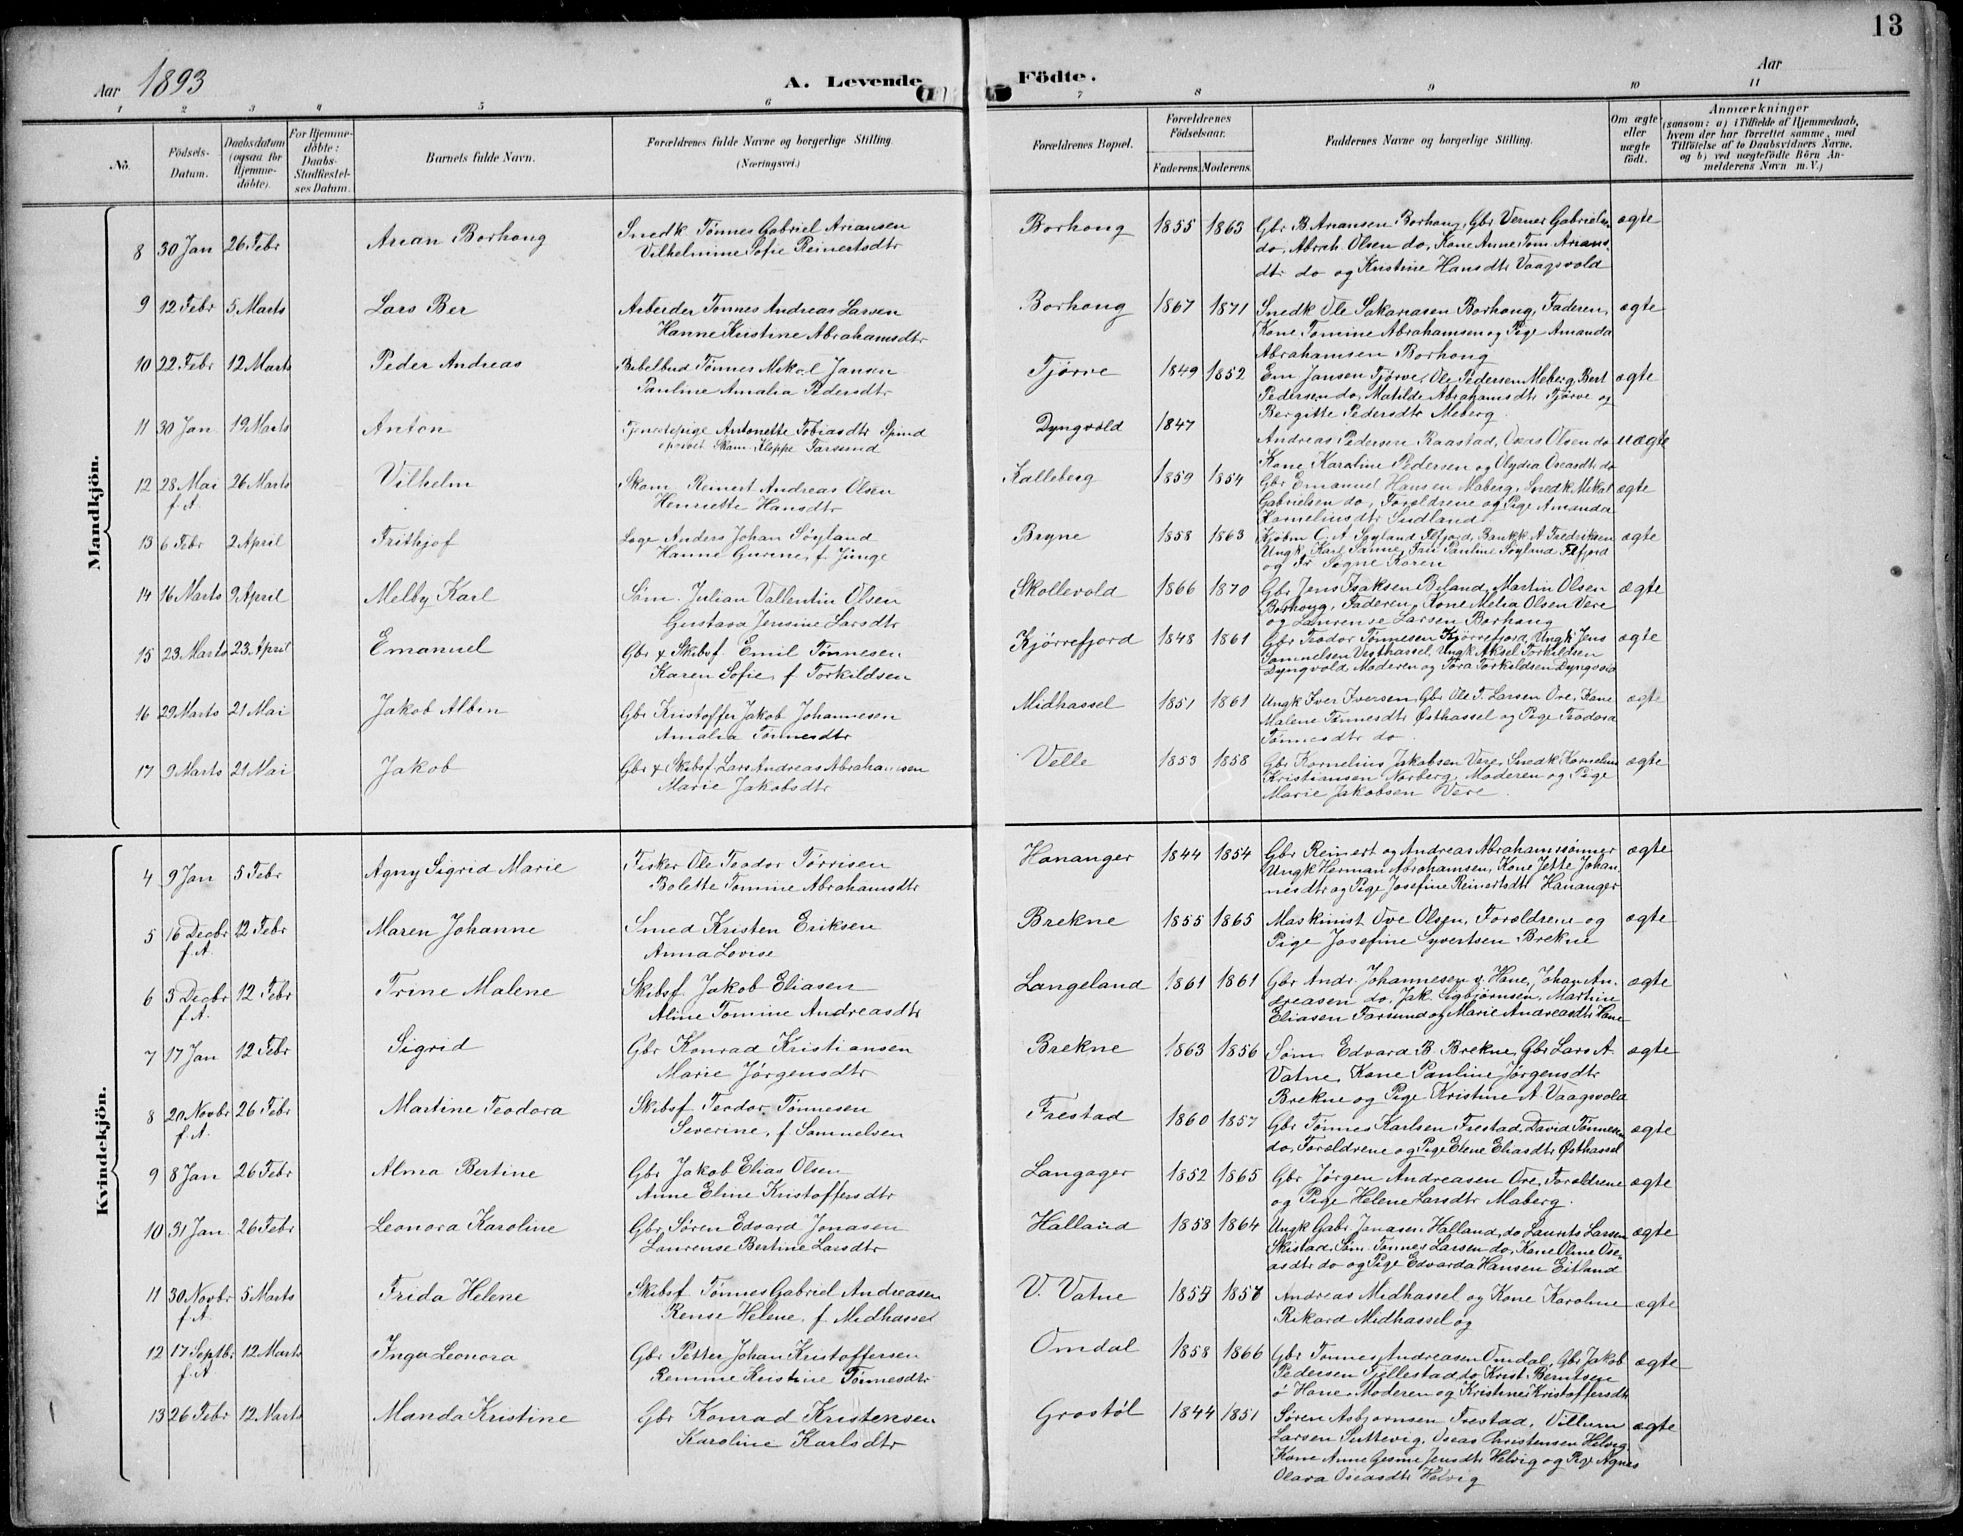 13
Aar 1893
A. Levende Födte.
Aar
1 2 3 4 5 6 7 8 9 10 11
No.
Födsels-Datum.
Daabsdatum (ogsaa for Hjemme-döbte).
For Hjemme-döbte: Daabs-Stadfæstel-ses Datum.
Barnets fulde Navn.
Forældrenes fulde Navne og borgerlige Stilling (Næringsvei.)
Forældrenes Bopæl.
Forældrenes Födselsaar.
Faderens. Moderens.
Faddernes Navne og borgerlige Stilling.
Om ægte eller uægte födt.
Anmærkninger
(saasom: a) i Tilfælde af Hjemmedaab, hvem der har forrettet samme, med Tilföielse af to Daabsvidners Navne, og b) ved uægtefödte Börn An-melderens Navn m.V.)
Mandkjön.
8 30 Jan 26 Febr Arian Borhong Snedk Tönnes Gabriel Ariansen Borhong 1855 1863 Gbr B. Ariansen Borhong, Gbr Verner Gabrielsen ægte
Vilhelmine Sofie Reinertsdtr do, Abrah. Olsen do, Kone Anne Tom. Arians-
dtr do og Kristine Hansdtr Vaagsvold
9 12 Febr 5 Marts Lars Ber Arbeider Tönnes Andreas Larsen Borhong 1867 1871 Snedk Ole Sakariasen Borhong, Faderen, ægte
Hanne Kristine Abrahamsdtr Kone Tomine Abrahamsen og Pige Amanda
Abrahamsen Borhong
10 22 Febr 12 Marts Peder Andreas Bibelbud Tønnes Mikal Jansen Tjørve 1849 1852 Em Jansen Tjørve, Ole Pedersen Meberg, Bert ægte
Pauline Amalia Pedersdtr Pedersen do, Matilde Abrahamsdtr Tjørve og
Bergitte Pedersdtr Meberg
11 30 Jan 19 Marts Anton Tjenestepige Antonette Tobiasdtr Spind Dyngvold 1847 Andreas Pedersen Raastad, Oseas Olsen do uægte
Skom. Kleppe Farsund Kone Karoline Pedersen og Olydia Oseasdtr do
12 28 Mai f.A. 26 Marts Vilhelm Skom Reinert Andreas Olsen Kalleberg 1859 1854 Gbr Emanuel Hansen Maberg, Snedk Mikal ægte
Henriette Hansdtr Gabrielsen do, Forældrene og Pige Amanda
Korneliusdtr Sudland
13 6 Febr 2 April Frithjof Læge Anders Johan Søyland Bryne 1858 1863 Kjøbm C. A Søyland Flfjord, Bankk. A Fredriksen ægte
Hanne Gurine, f Jinge Ungk Karl Sanne, Frü Pauline Søyland Flfjord
og Fr Sogne Koren
14 16 Marts 9 April Melby Karl Søm. Julian Vallentin Olsen Skollevold 1866 1870 Gbr Jens Isaksen Byland, Martin Olsen ægte
Gustava Jensine Larsdtr Borhong, Faderen, Kone Melia Olsen Vere
og Laurense Larsen Borhong
15 23 Marts 23 April Emanuel Gbr & Skibsf Emil Tønnesen Kjørrefjord 1848 1861 Gbr Teodor Tønnesen Kjørrefjord, Ungk Jens ægte
Karen Sofie, f Torkildsen Samuelsen Vesthassel, Ungk Aksel Torkildsen
Dyngvold, Moderen og Tora Torkildsen Dyngvold
16 29 Marts 21 Mai Jakob Albin Gbr Kristoffer Jakob Johannesen Midhassel 1851 1861 Ungk Iver Iversen, Gbr Ole T. Larsen Ore, Kone ægte
Amalia Tønnesdtr Malene Tønnesdtr Østhassel og Pige Teodora
Tønnesdtr do
17 9 Marts 21 Mai Jakob Gbr & Skibsf. Lars Andreas Abrahamsen Velle 1853 1858 Gbr Kornelius Jakobsen Vere, Snedk Kornelius ægte
Marie Jakobsdtr Kristiansen Norberg, Moderen og Pige
Marie Jakobsen Vere
Kvindekjön.
4 9 Jan 5 Febr Agny Sigrid Marie Fisker Ole Teodor Tørrisen Hananger 1844 1854 Gbr Reinert og Andreas Abrahamsønner ægte
Bolette Tomine Abrahamsdtr Ungk Herman Abrahamsen, Kone Jette Johan-
nesdtr og Pige Josefine Reinertsdtr Hananger
5 16 Decbr f.A. 12 Febr Maren Johanne Smed Kristen Eriksen Brekne 1855 1865 Maskinist Ove Olsen, Forældrene og ægte
Anna Lovise Pige Josefine Syvertsen Brekne
6 5 Decbr f.A. 12 Febr Trine Malene Skibsf Jakob Eliasen Langeland 1861 1861 Gbr Andr Johannesen y. Hane, Johan An- ægte
Aline Tomine Andreasdtr dreasen do, Jak. Sigbjørnsen, Martine
Eliasen Farsund og Marie Andreasdtr Hane
7 17 Jan 12 Febr Sigrid Gbr Konrad Kristiansen Brekne 1863 1856 Søm Edvard B. Brekne, Gbr Lars A ægte
Marie Jørgensdtr Vatne, Kone Pauline Jørgensdtr
Brekne og Pige Kristine A Vaagsvold
8 20 Novbr f.A. 26 Febr Martine Teodora Skibsf Teodor Tønnesen Frestad 1860 1857 Gbr Tønnes Karlsen Frestad, David Tønnesen ægte
Severine, f Samuelsen do, Forældrene og Pige Elene Eliasdtr Østhassel
9 8 Jan 26 Febr Alma Bertine Gbr Jakob Elias Olsen Langager 1852 1865 Gbr Jørgen Andreasen Ore, Forældrene ægte
Anne Eline Kristoffersdtr og Pige Helene Larsdtr Maberg
10 31 Jan 26 Febr Leonora Karoline Gbr Søren Edvard Jonasen Halland 1858 1864 Ungk Gabr Jonasen Halland, do Laurits Larsen ægte
Laurense Bertine Larsdtr Skistad, Søm. Tønnes Larsen do, Kone Oline Ose-
asdtr do og Pige Edvarda Hansen Eitland
11 30 Novbr f.A. 5 Marts Frida Helene Skibsf Tønnes Gabriel Andreasen V. Vatne 1855 1857 Andreas Midhassel og Kone Karoline ægte
Rense Helene, f Midhassel Rikard Midhassel og
12 17 Septbr f.A. 12 Marts Inga Leonora Gbr Petter Johan Kristoffersen Omdal 1858 1866 Gbr Tønnes Andreasen Omdal, Gbr Jakob ægte
Remine Kristine Tønnesdtr Pedersen Fjellestad, do Krist. Berntsen
ö Hane, Moderen og Kristine Kristoffersdtr
13 26 Febr 12 Marts Manda Kristine Gbr Konrad Kristensen Grostøl 1844 1851 Søren Asbjørnsen Frestad, Villum ægte
Karoline Karlsdtr Larsen Suttevig, Oseas Christensen Helvig,
Kone Anne Gesine Jensdtr Helvig og Pige Agnes
Olava Oseasdtr Helvig